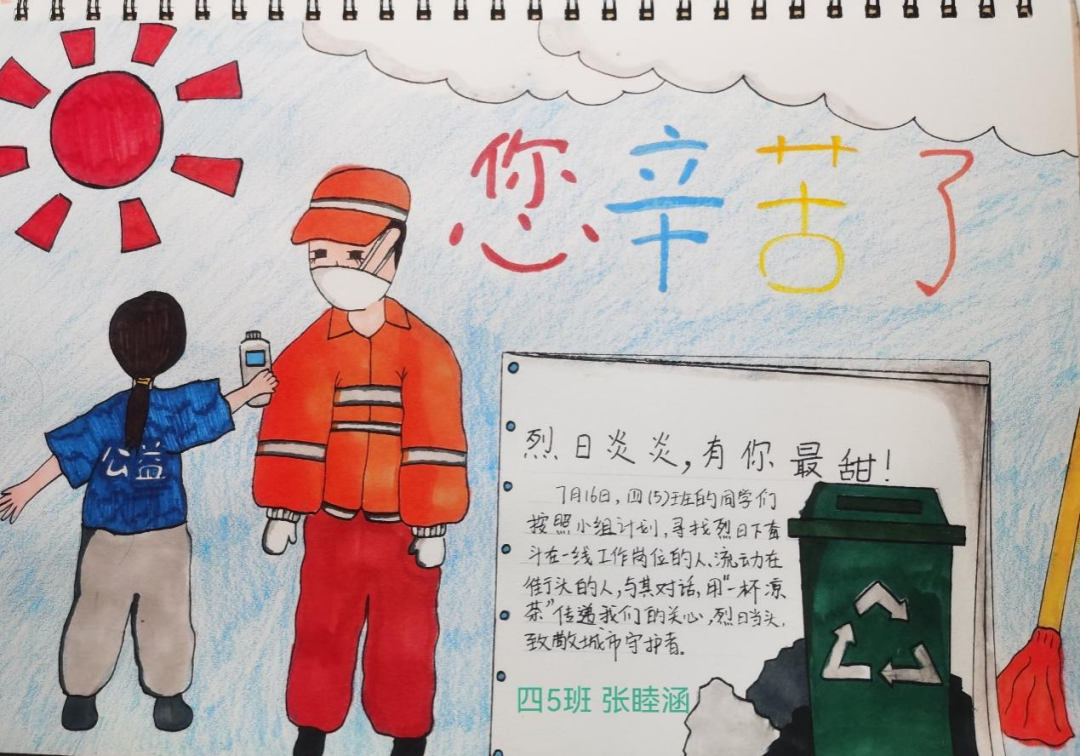 您辛苦了
公益
烈日炎炎,有你最甜!
7月16日,四(5)班的同学们
按照小组计划,寻找烈日下奋
斗在一线工作岗位的人、流动在
街头的人,与其对话,用“一杯凉
茶”传递我们的关心,烈日当头,
致敬城市守护者。
四5班 张睦涵